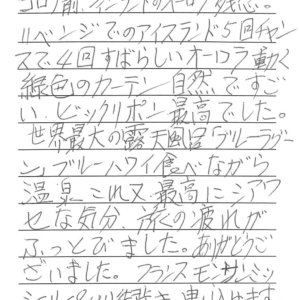 コロナ前、フィンランドのオーロラ残念。
リベンジでのアイスランド5回チャン
スで4回すばらしいオーロラ動く
緑色のカーテン自然ですご
い、ビックリポン最高でした。
世界最大の露天風呂「ブルーラグー
ン」ブルーハワイ食べながら
温泉これ又最高にシアワ
セな気分、旅の疲れが
ふっとびました。ありがとうご
ざいました。フランスモンサンミッ
シェル